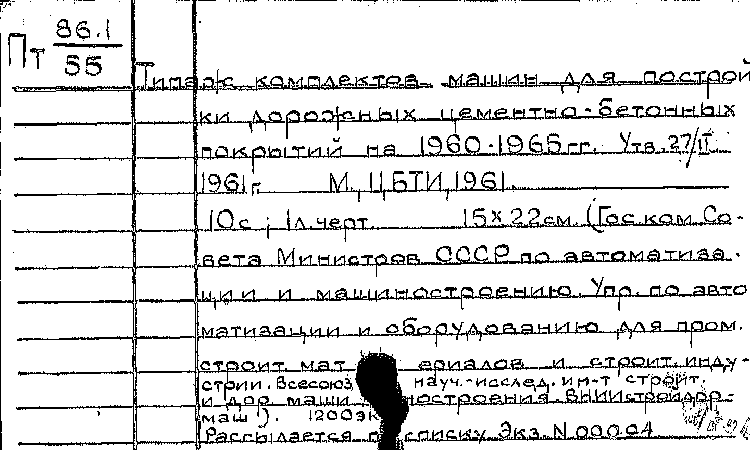 Пт 86.1/55
Типаж комплектов машин для построй
ки дорожных цементно-бетонных
покрытий на 1960-1965 гг. Утв. 27/II
1961 г. М., ЦБТИ, 1961.
10 с; 1 л. черт. 15×22 см. (Гос. ком. Со-
вета Министров СССР по автоматиза-
ции и машиностроению. Упр. по авто
матизации и оборудованию для пром.
строит. мат ериалов и строит. инду-
стрии. Всесоюз. науч.-исслед. ин-т строит.
и дор. маши ностроения. ВНИИстройдор-
маш). 1200 эк
Рассылается п списку. Экз. N 00004